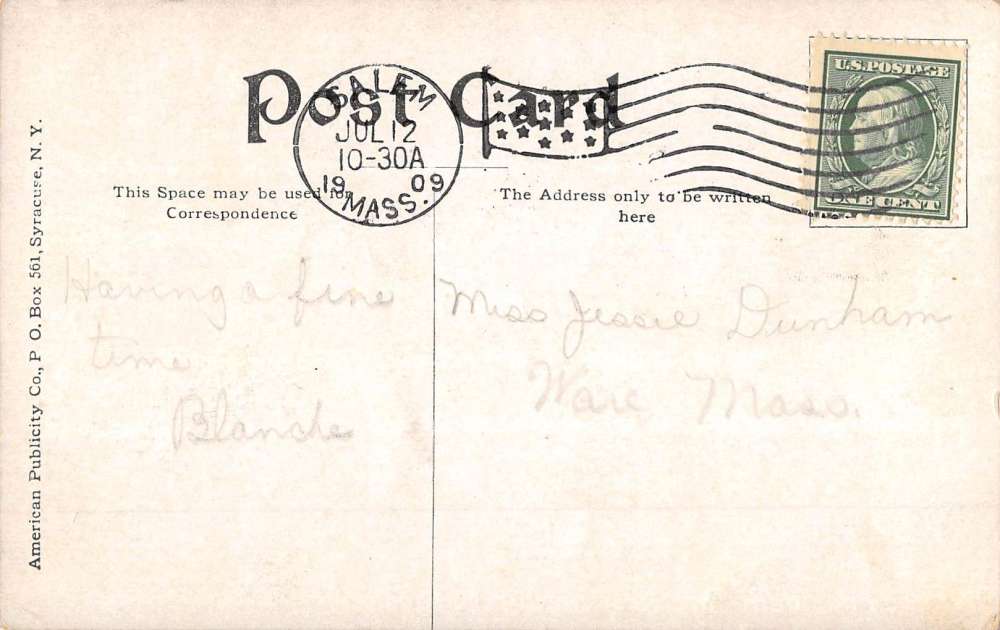 Post Card
SALEM
JUL 12
10-30A
19 09
MASS.
U.S. POSTAGE
ONE CENT
This Space may be used for
Correspondence
The Address only to be written
here
Having a fine
time
Blanche
Miss Jessie Dunham
Ware Mass.
American Publicity Co., P O. Box 561, Syracuse, N. Y.